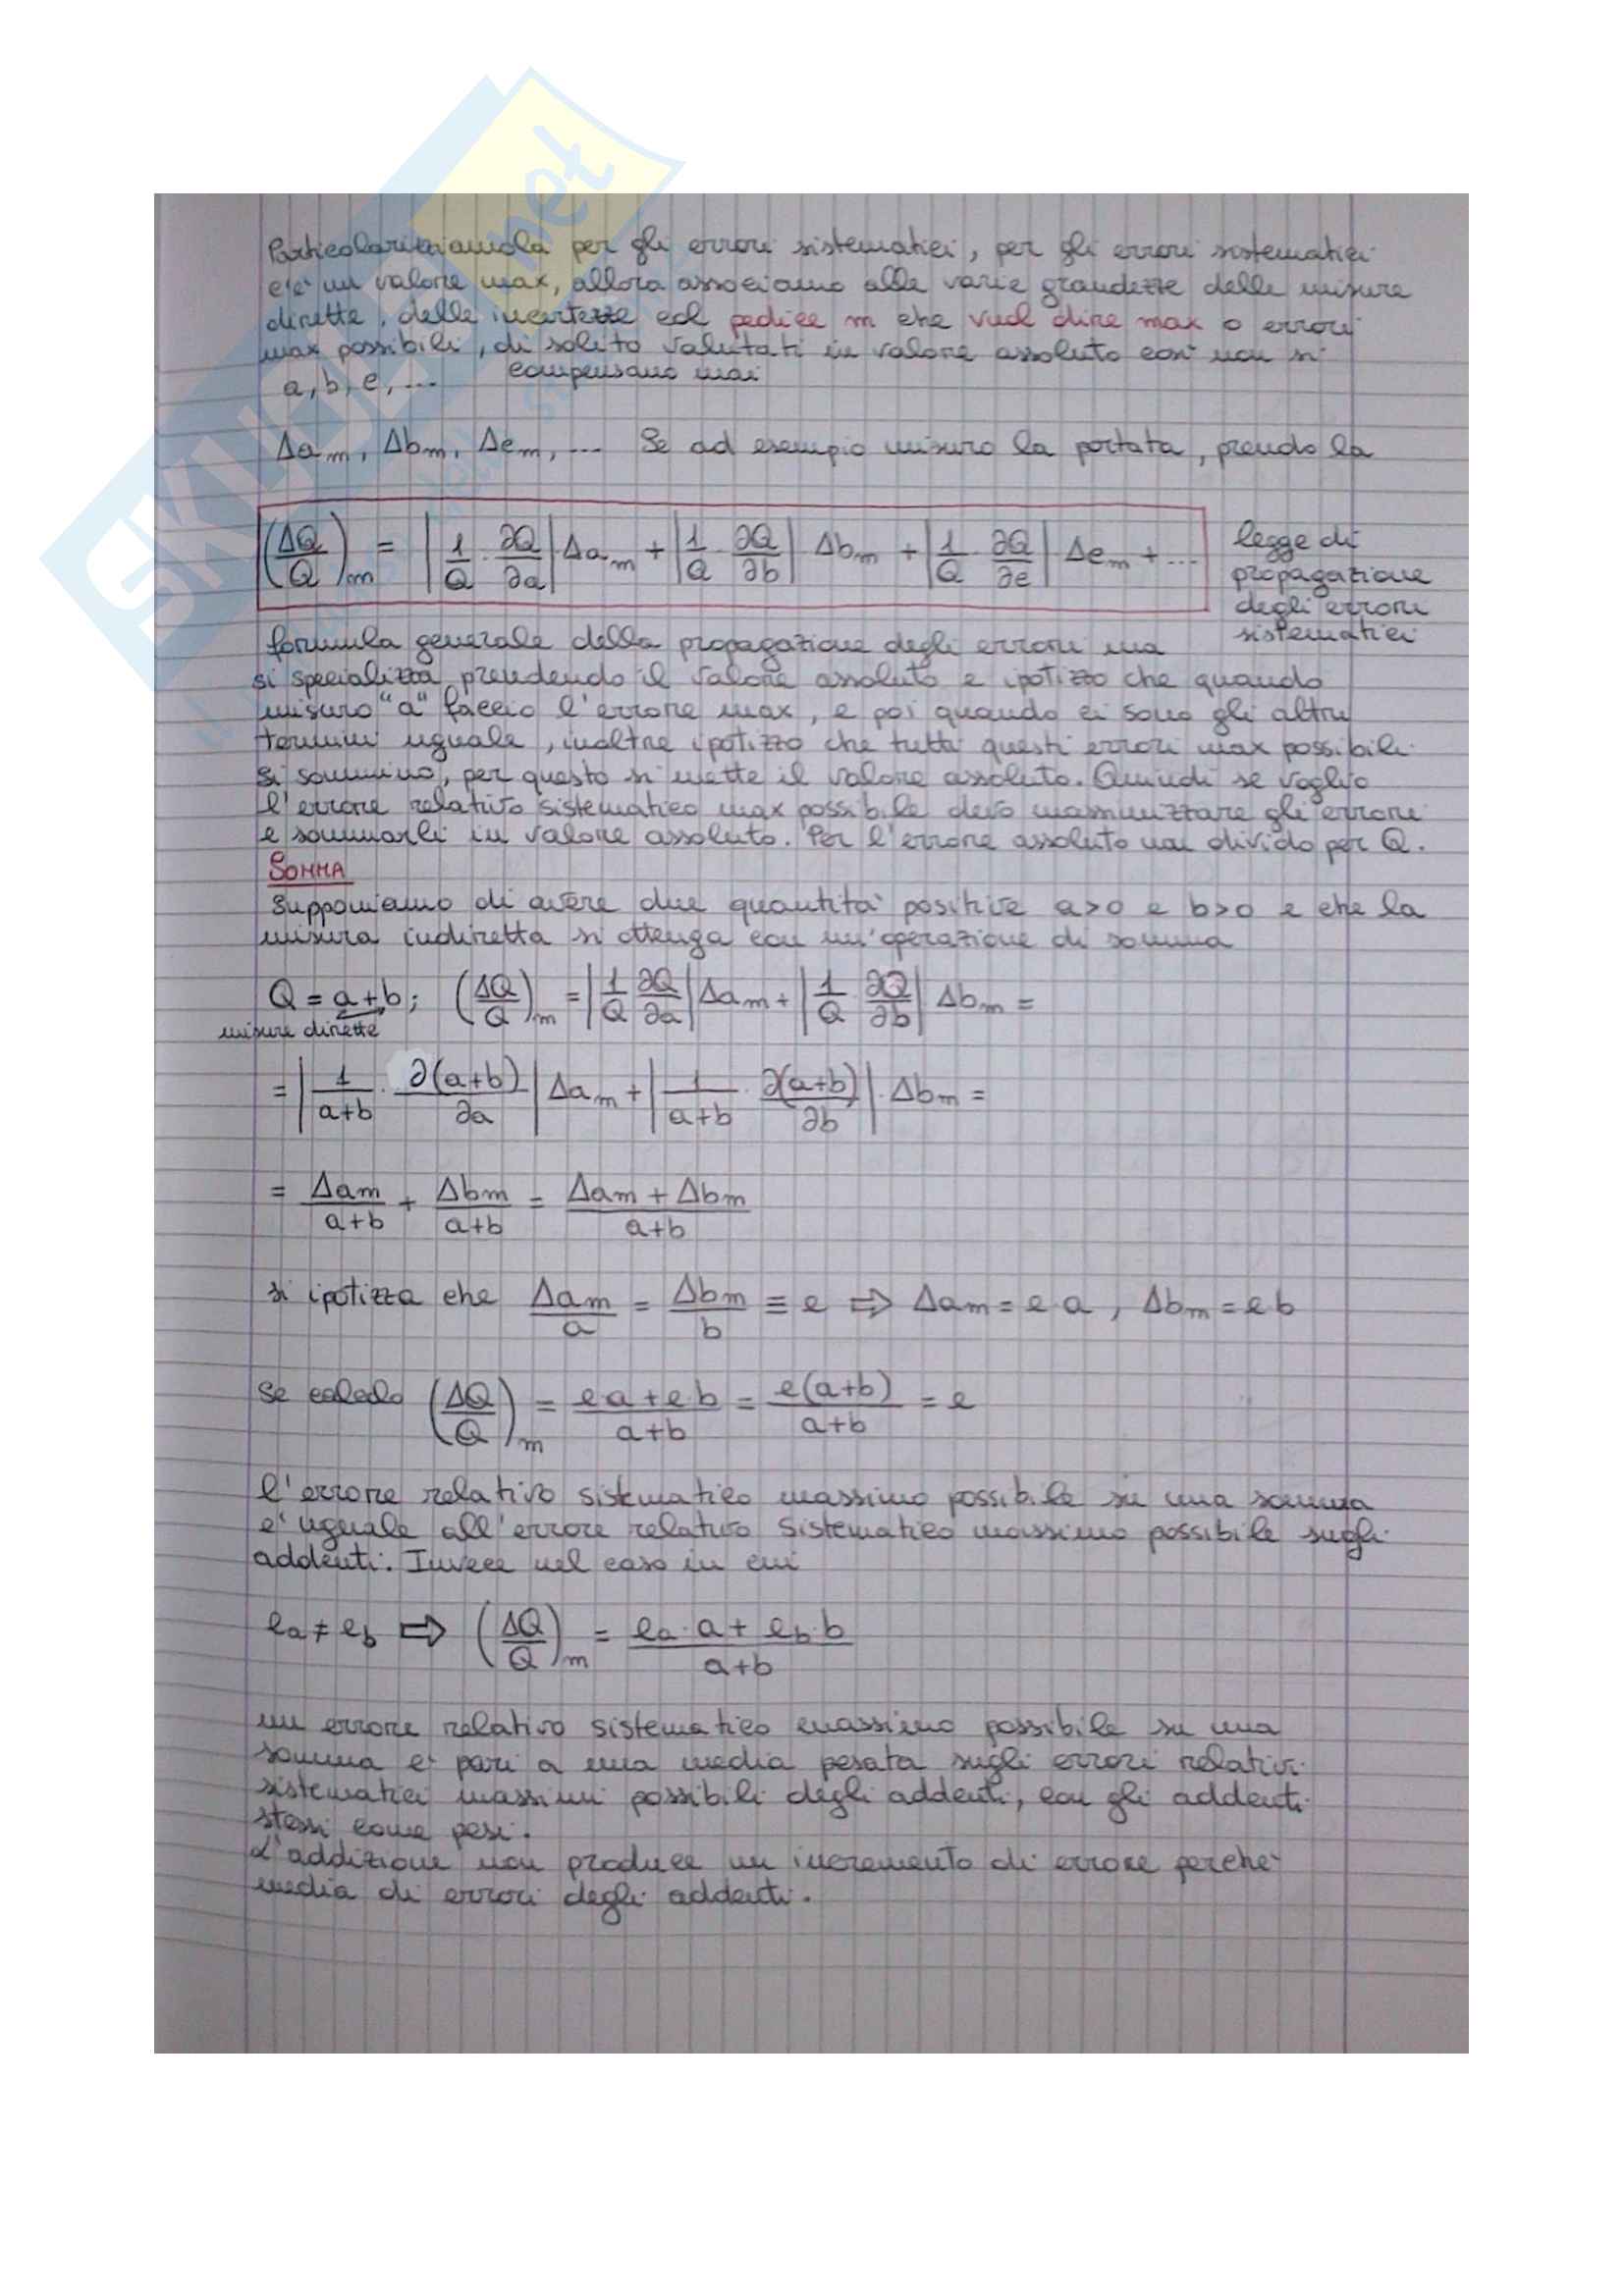 SKUOLA.net
Particolarizziamola per gli errori sistematici, per gli errori sistematici
c'è un valore max, allora associamo alle varie grandezze delle misure
dirette, delle incertezze col pedice m che vuol dire max o errori
max possibili, di solito valutati in valore assoluto così non si
compensano mai
a, b, c, ...
Δam, Δbm, Δcm, ... Se ad esempio misuro la portata, prendo la
(ΔQ/Q)m = |1/Q · ∂Q/∂a| Δam + |1/Q · ∂Q/∂b| Δbm + |1/Q · ∂Q/∂c| Δcm + ...
legge di
propagazione
degli errori
sistematici
formula generale della propagazione degli errori ma
si specializza prendendo il valore assoluto e ipotizzo che quando
misuro "a" faccio l'errore max, e poi quando ci sono gli altri
termini uguale, inoltre ipotizzo che tutti questi errori max possibili
si sommino, per questo si mette il valore assoluto. Quindi se voglio
l'errore relativo sistematico max possibile devo massimizzare gli errori
e sommarli in valore assoluto. Per l'errore assoluto non divido per Q.
SOMMA
Supponiamo di avere due quantità positive a>0 e b>0 e che la
misura indiretta si ottenga con un'operazione di somma
Q = a+b; (ΔQ/Q)m = |1/Q ∂Q/∂a| Δam + |1/Q · ∂Q/∂b| Δbm =
misure dirette
= |1/(a+b) · ∂(a+b)/∂a| Δam + |1/(a+b) · ∂(a+b)/∂b| · Δbm =
= Δam/(a+b) + Δbm/(a+b) = (Δam + Δbm)/(a+b)
si ipotizza che Δam/a = Δbm/b ≡ e ⇒ Δam = e·a, Δbm = e b
Se calcolo (ΔQ/Q)m = (e·a + e·b)/(a+b) = e(a+b)/(a+b) = e
l'errore relativo sistematico massimo possibile su una somma
è uguale all'errore relativo sistematico massimo possibile sugli
addenti. Invece nel caso in cui
ea ≠ eb ⇒ (ΔQ/Q)m = (ea·a + eb·b)/(a+b)
un errore relativo sistematico massimo possibile su una
somma è pari a una media pesata sugli errori relativi
sistematici massimi possibili degli addenti, con gli addenti
stessi come pesi.
L'addizione non produce un incremento di errore perchè
media di errori degli addenti.